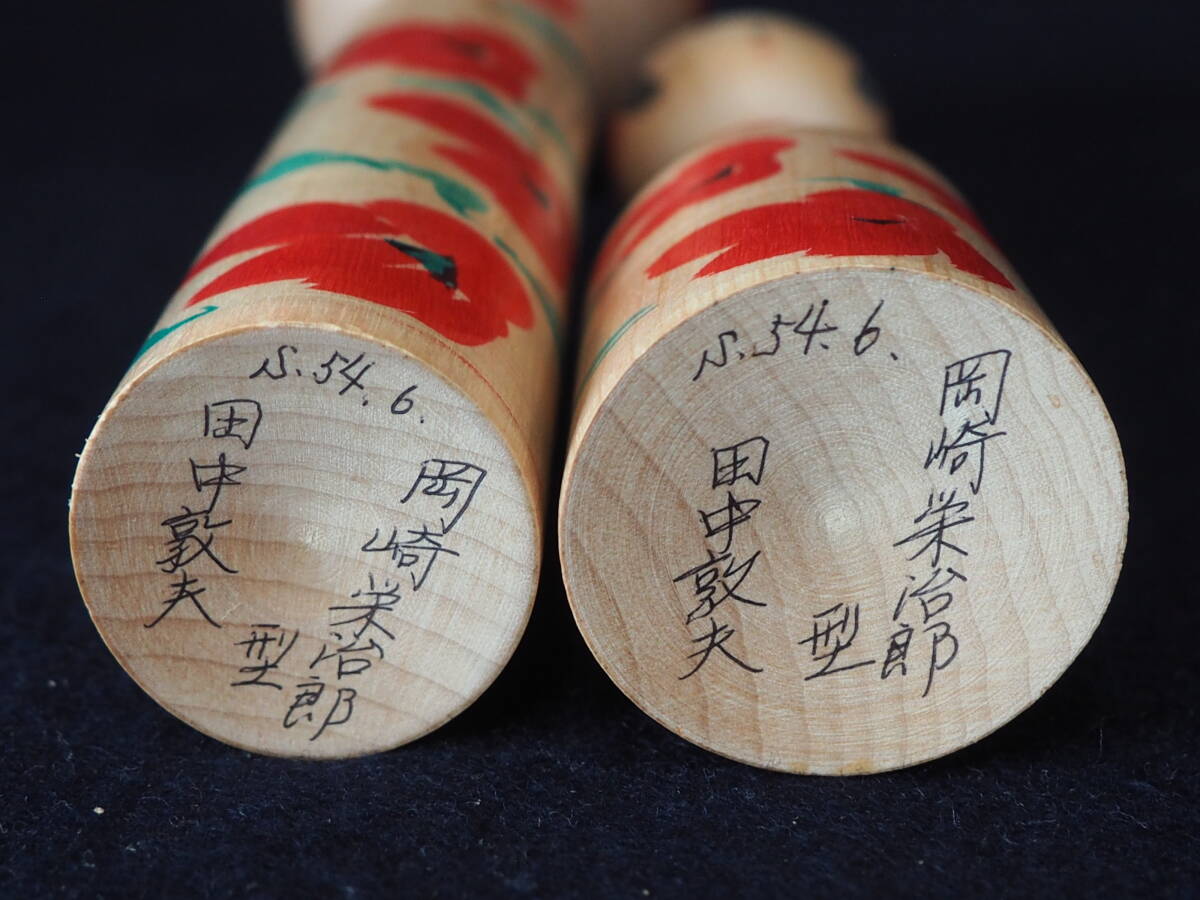 S.54.6.
岡崎栄治郎
型
田中敦夫
S.54.6.
岡崎栄治郎
型
田中敦夫